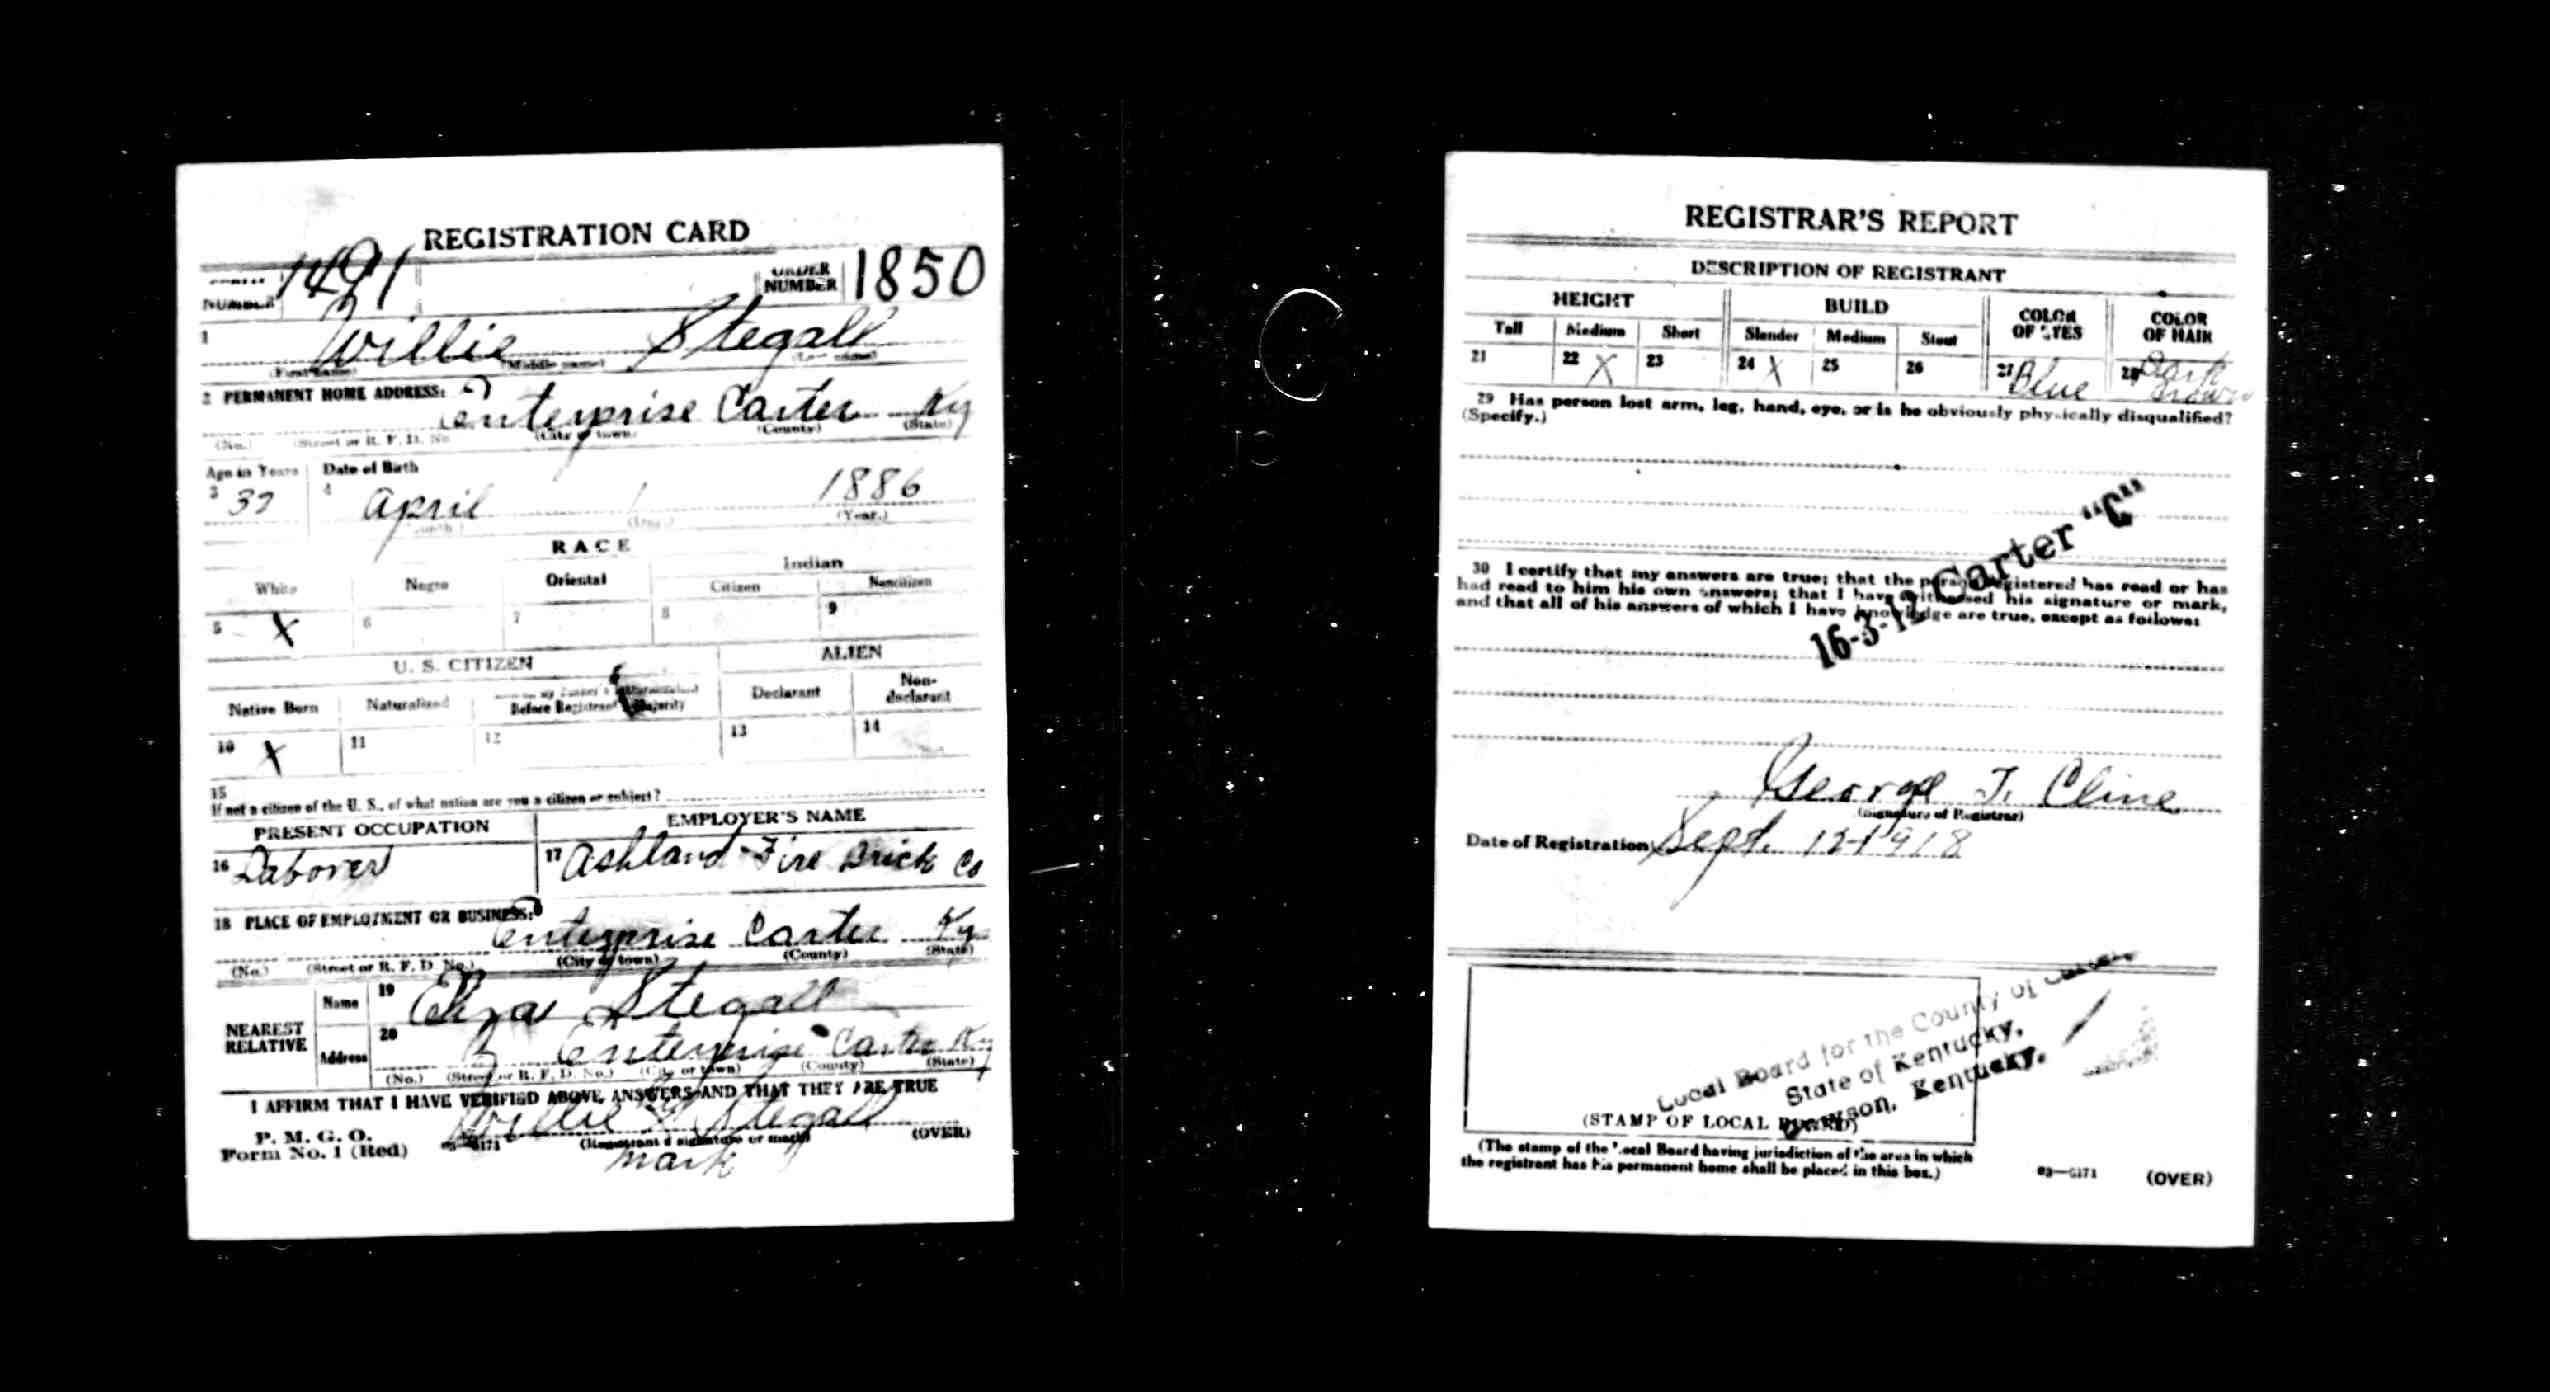 REGISTRATION CARD
NUMBER 1491 ORDER NUMBER 1850
1 Willie Stegall
(First name) (Middle name) (Last name)
2 PERMANENT HOME ADDRESS:
Enterprise Carter Ky
(No.) (Street or R. F. D. No.) (City or town) (County) (State)
Age in Years Date of Birth
3 32 4 April 1 1886
(Month.) (Day.) (Year.)
RACE
White Negro Oriental Indian
Citizen Noncitizen
5 X 6 7 8 9
U. S. CITIZEN ALIEN
Native Born Naturalized Citizen by Father's Naturalization Before Registrant's Majority Declarant Non-declarant
10 X 11 12 13 14
15
If not a citizen of the U. S., of what nation are you a citizen or subject?
PRESENT OCCUPATION EMPLOYER'S NAME
16 Laborer 17 Ashland Fire Brick Co
18 PLACE OF EMPLOYMENT OR BUSINESS:
Enterprise Carter Ky
(No.) (Street or R. F. D. No.) (City or town) (County) (State)
NEAREST RELATIVE
Name 19 Stegall
Address 20 Enterprise Carter Ky
(No.) (Street or R. F. D. No.) (City or town) (County) (State)
I AFFIRM THAT I HAVE VERIFIED ABOVE ANSWERS AND THAT THEY ARE TRUE
P. M. G. O.
Form No. 1 (Red) Willie X Stegall
(Registrant's signature or mark) (OVER)
mark
REGISTRAR'S REPORT
DESCRIPTION OF REGISTRANT
HEIGHT BUILD COLOR OF EYES COLOR OF HAIR
Tall Medium Short Slender Medium Stout
21 22 X 23 24 X 25 26 27 Blue 28 Dark Brown
29 Has person lost arm, leg, hand, eye, or is he obviously physically disqualified?
(Specify.)
30 I certify that my answers are true; that the person registered has read or has
had read to him his own answers; that I have witnessed his signature or mark,
and that all of his answers of which I have knowledge are true, except as follows:
16-3-12 Carter "C"
George T. Cline
(Signature of Registrar)
Date of Registration Sept. 12-1918
Local Board for the County of Carter,
State of Kentucky,
Grayson, Kentucky.
(STAMP OF LOCAL BOARD)
(The stamp of the Local Board having jurisdiction of the area in which
the registrant has his permanent home shall be placed in this box.)
03—6171 (OVER)